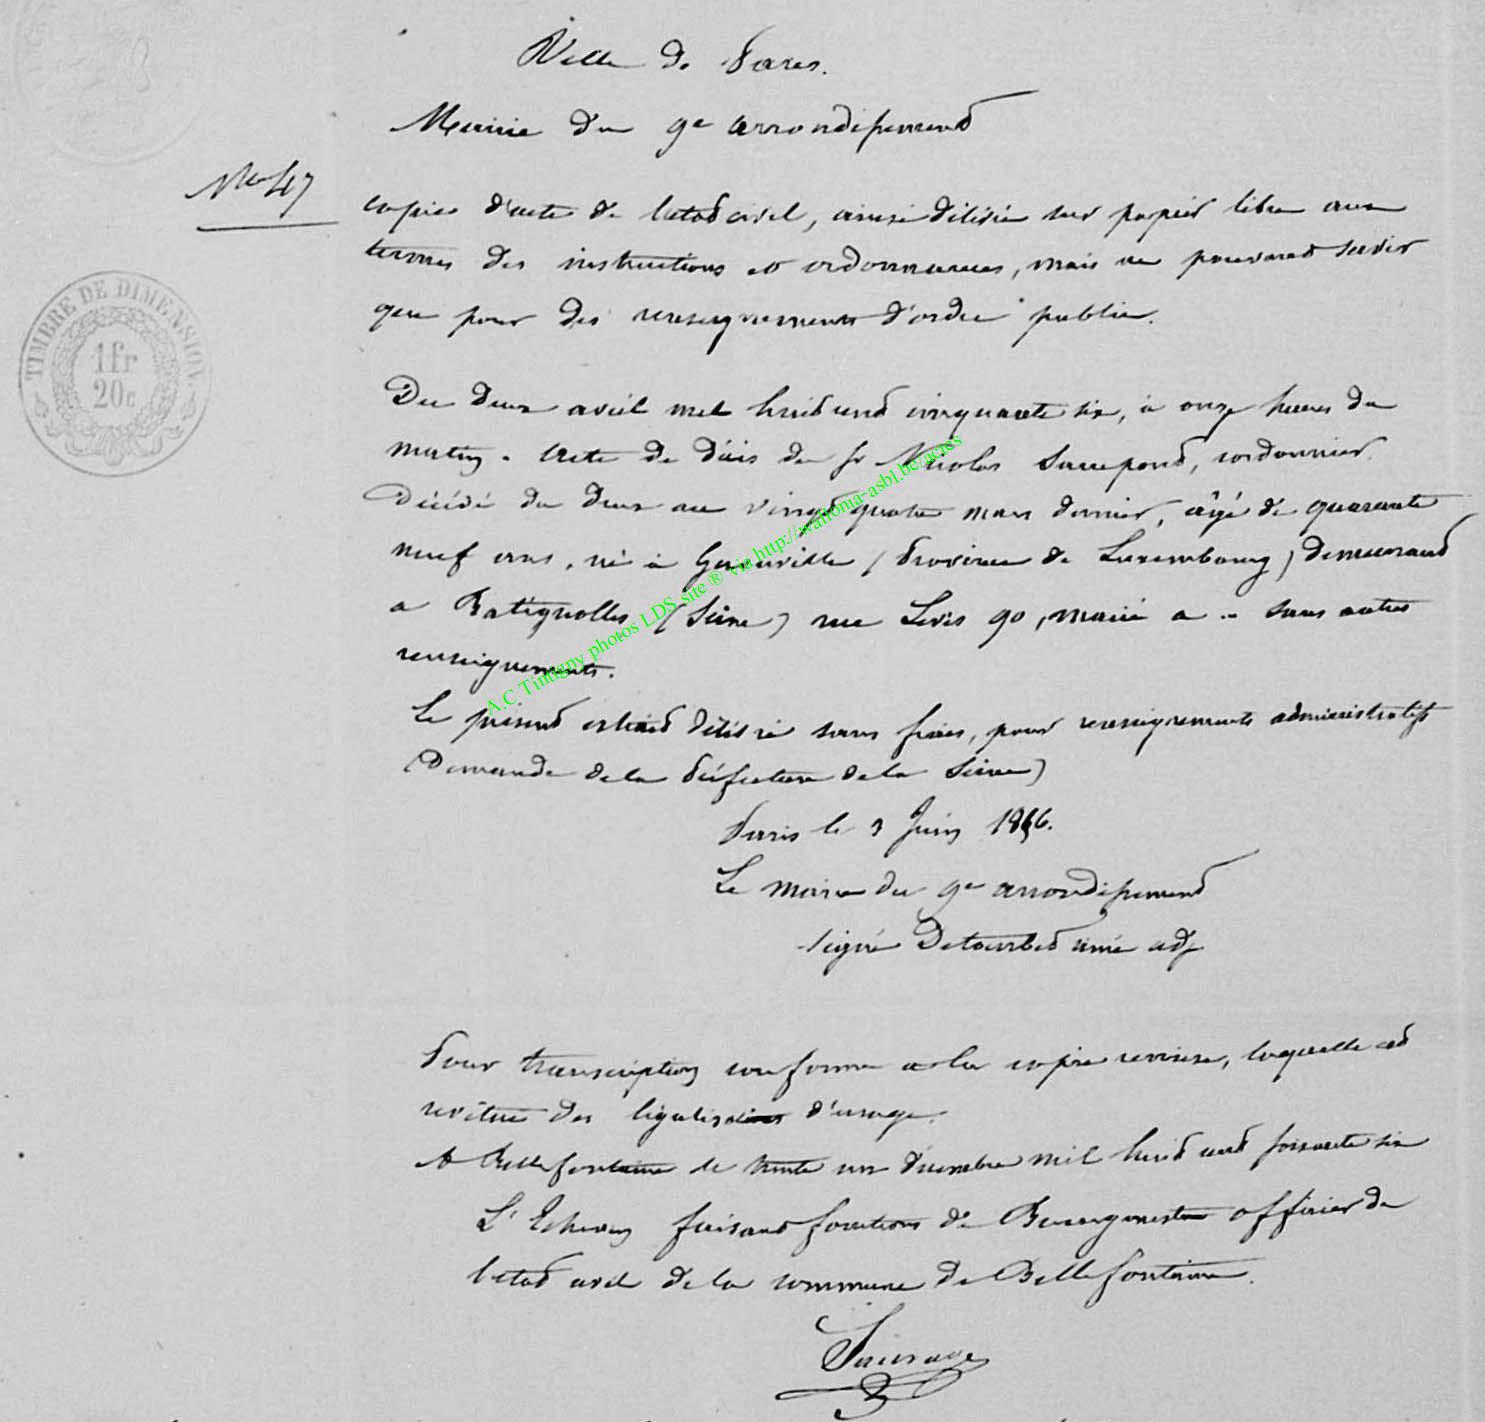 Ville de Paris.
Mairie du 9e arrondissement
No 47
copie d'acte de l'état civil, ainsi délivré sur papier libre aux
termes des instructions et ordonnances, mais ne pouvant servir
que pour des renseignements d'ordre public.
TIMBRE DE DIMENSION.
1fr
20c
Du deux avril mil huit cent cinquante six, à onze heures du
matin. Acte de décès de Sr Nicolas, cordonnier.
Décédé du deux au vingt quatre mars dernier, âgé de quarante
neuf ans, né à (Province de Luxembourg) demeurant
a Batignolles (Seine) rue Levis 90, marié a .. sans autres
renseignements.
Le présent extrait délivré sans frais, pour renseignements administratifs
(Demande de la Préfecture de la Seine)
Paris le 3 Juin
Le maire du 9e arrondissement
signé ainé adj
Pour transcription conforme a la copie, laquelle est
revêtue des légalisations d'usage.
A Bellefontaine le trente un décembre mil huit cent soixante six
L'Echevin faisant fonctions de Bourgmestre officier de
l'état civil de la commune de Bellefontaine.
Sauvage
A.C Tintigny photos LDS site ® via http://wallonia-asbl.be/actes